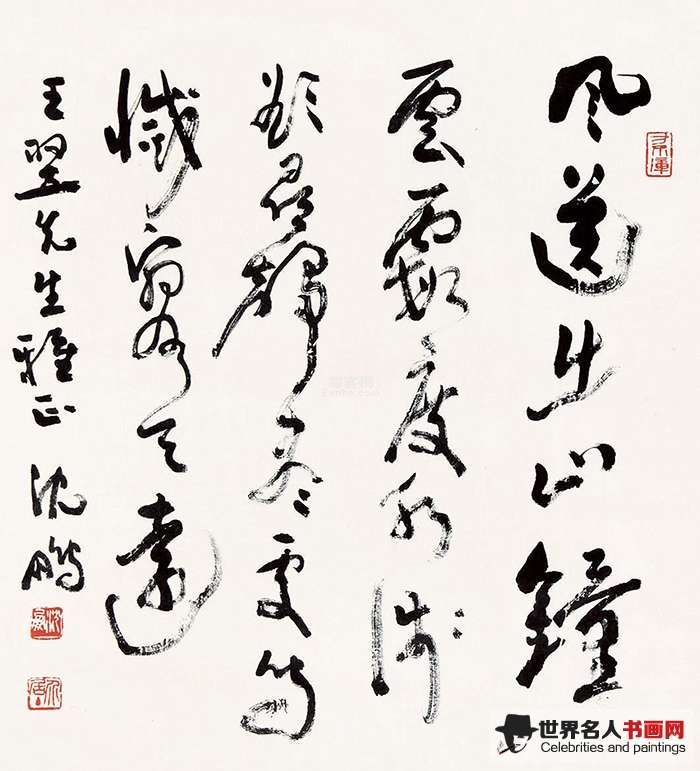 風送出山鐘
雲霞度水淺
欲尋聲盡處鳥
滅寥天遠
王翌先生雅正 沈鵬
世界名人书画网
Celebrities and paintings